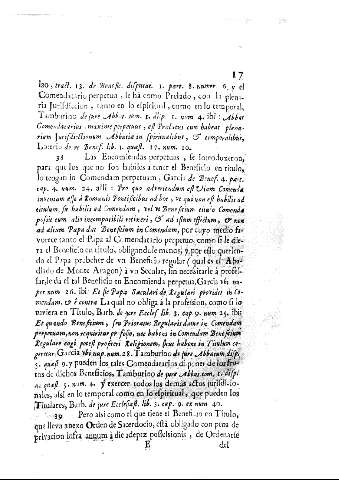 17
so, tract. 13. de Benefic. disputat. 1. part. 8. numer. 6. y el
Comendatario perpetuo, le hà como Prelado, con la plena-
ria Jurisdicion, tanto en lo espiritual, como en lo temporal,
Tamburino de jure Abb. tom. 1. disp. 1. num. 4. ibi: Abbas
Comendatarius maxime perpetuus, est Prælatus cum habeat plena-
riam Jurisdictionem Abbatia in spiritualibus, & temporalibus,
Loterio de re Benef. lib. 1. quæst. 17. num. 20.
38 Las Encomiendas perpetuas, se introduxeron,
para que los que no son habiles a tener el Beneficio en titulo,
lo tengan in Comendam perpetuam, Garcia de Benef. 4. part.
cap. 4. num. 24. alli: Pro quo advertendum est Utiam Comenda
inventam esse à Romanis Pontificibus ad hoc, ut qui non est habilis ad
titulum, fit habilis ad Comendam, vel ut Beneficium titulo Comenda
possit cum alio incompatibili retineri, & ad istum effectum, & non
ad alium Papa dat Beneficium in Comendam, por cuyo medio fa-
vorece tanto el Papa al Comendatario perpetuo, como si le die-
ra el Beneficio en titulo, obligandole menos; y por esso querien-
do el Papa probeher de vn Beneficio regular (qual es el Aba-
diado de Monte Aragon) à vn Secular, sin necesitarle à profes-
sar, le da el tal Beneficio en Encomienda perpetua, Garcia ubi su-
per num. 26. ibi: Et sic Papa Seculari de Regulari providet in Co-
mendam, & è contra La qual no obliga à la profession, como si lo
tuviera en Titulo, Barb. de jure Eccles. lib. 3. cap. 9. num. 25. ibi:
Et quando Beneficium, seu Prioratus Regularis datur in Comendam
perpetuam, non requiritur professio, nec habens in Comendam Beneficium
Regulare cogi potest profiteri Religionem, sicut habens in Titulum co-
geretur, Garcia ubi sup. num. 28. Tamburino de jure Abbatum disp.
5. quæst. 9. y pueden los tales Comendatarios disponer de los fru-
tos de dichos Beneficios, Tamburino de jure Abbat. tom. 1. disp.
4. quæst. 5. num. 4. y exercer todos los demàs actos jurisdicio-
nales, assi en lo temporal como en lo espiritual, que pueden los
Titulares, Barb. de jure Ecclesiast. lib. 3. cap. 9. ex num. 40.
39 Pero assi como el que tiene el Beneficio en Titulo,
que lleva anexo Orden de Sacerdocio, està obligado con pena de
privacion infra annum à die adeptæ possessionis, de Ordenarse
E del